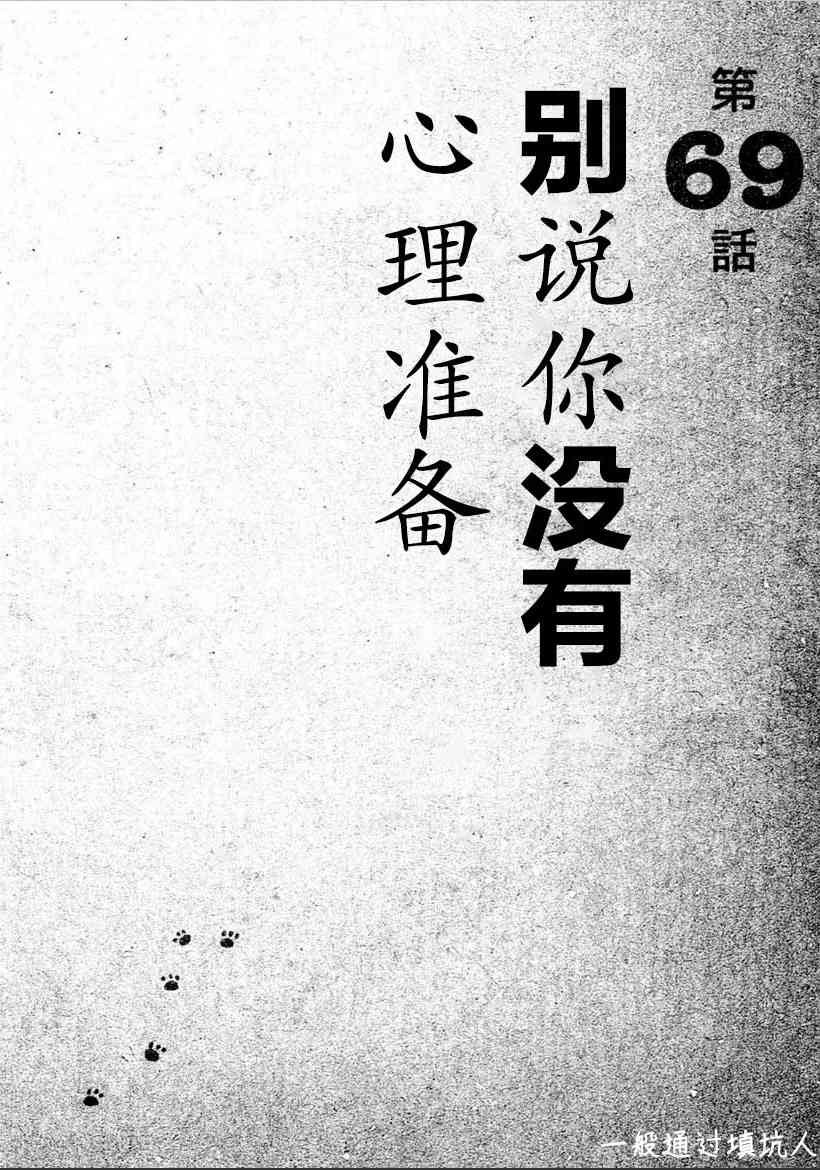 第
69
話
别说你没有
心理准备
一般通过填坑人